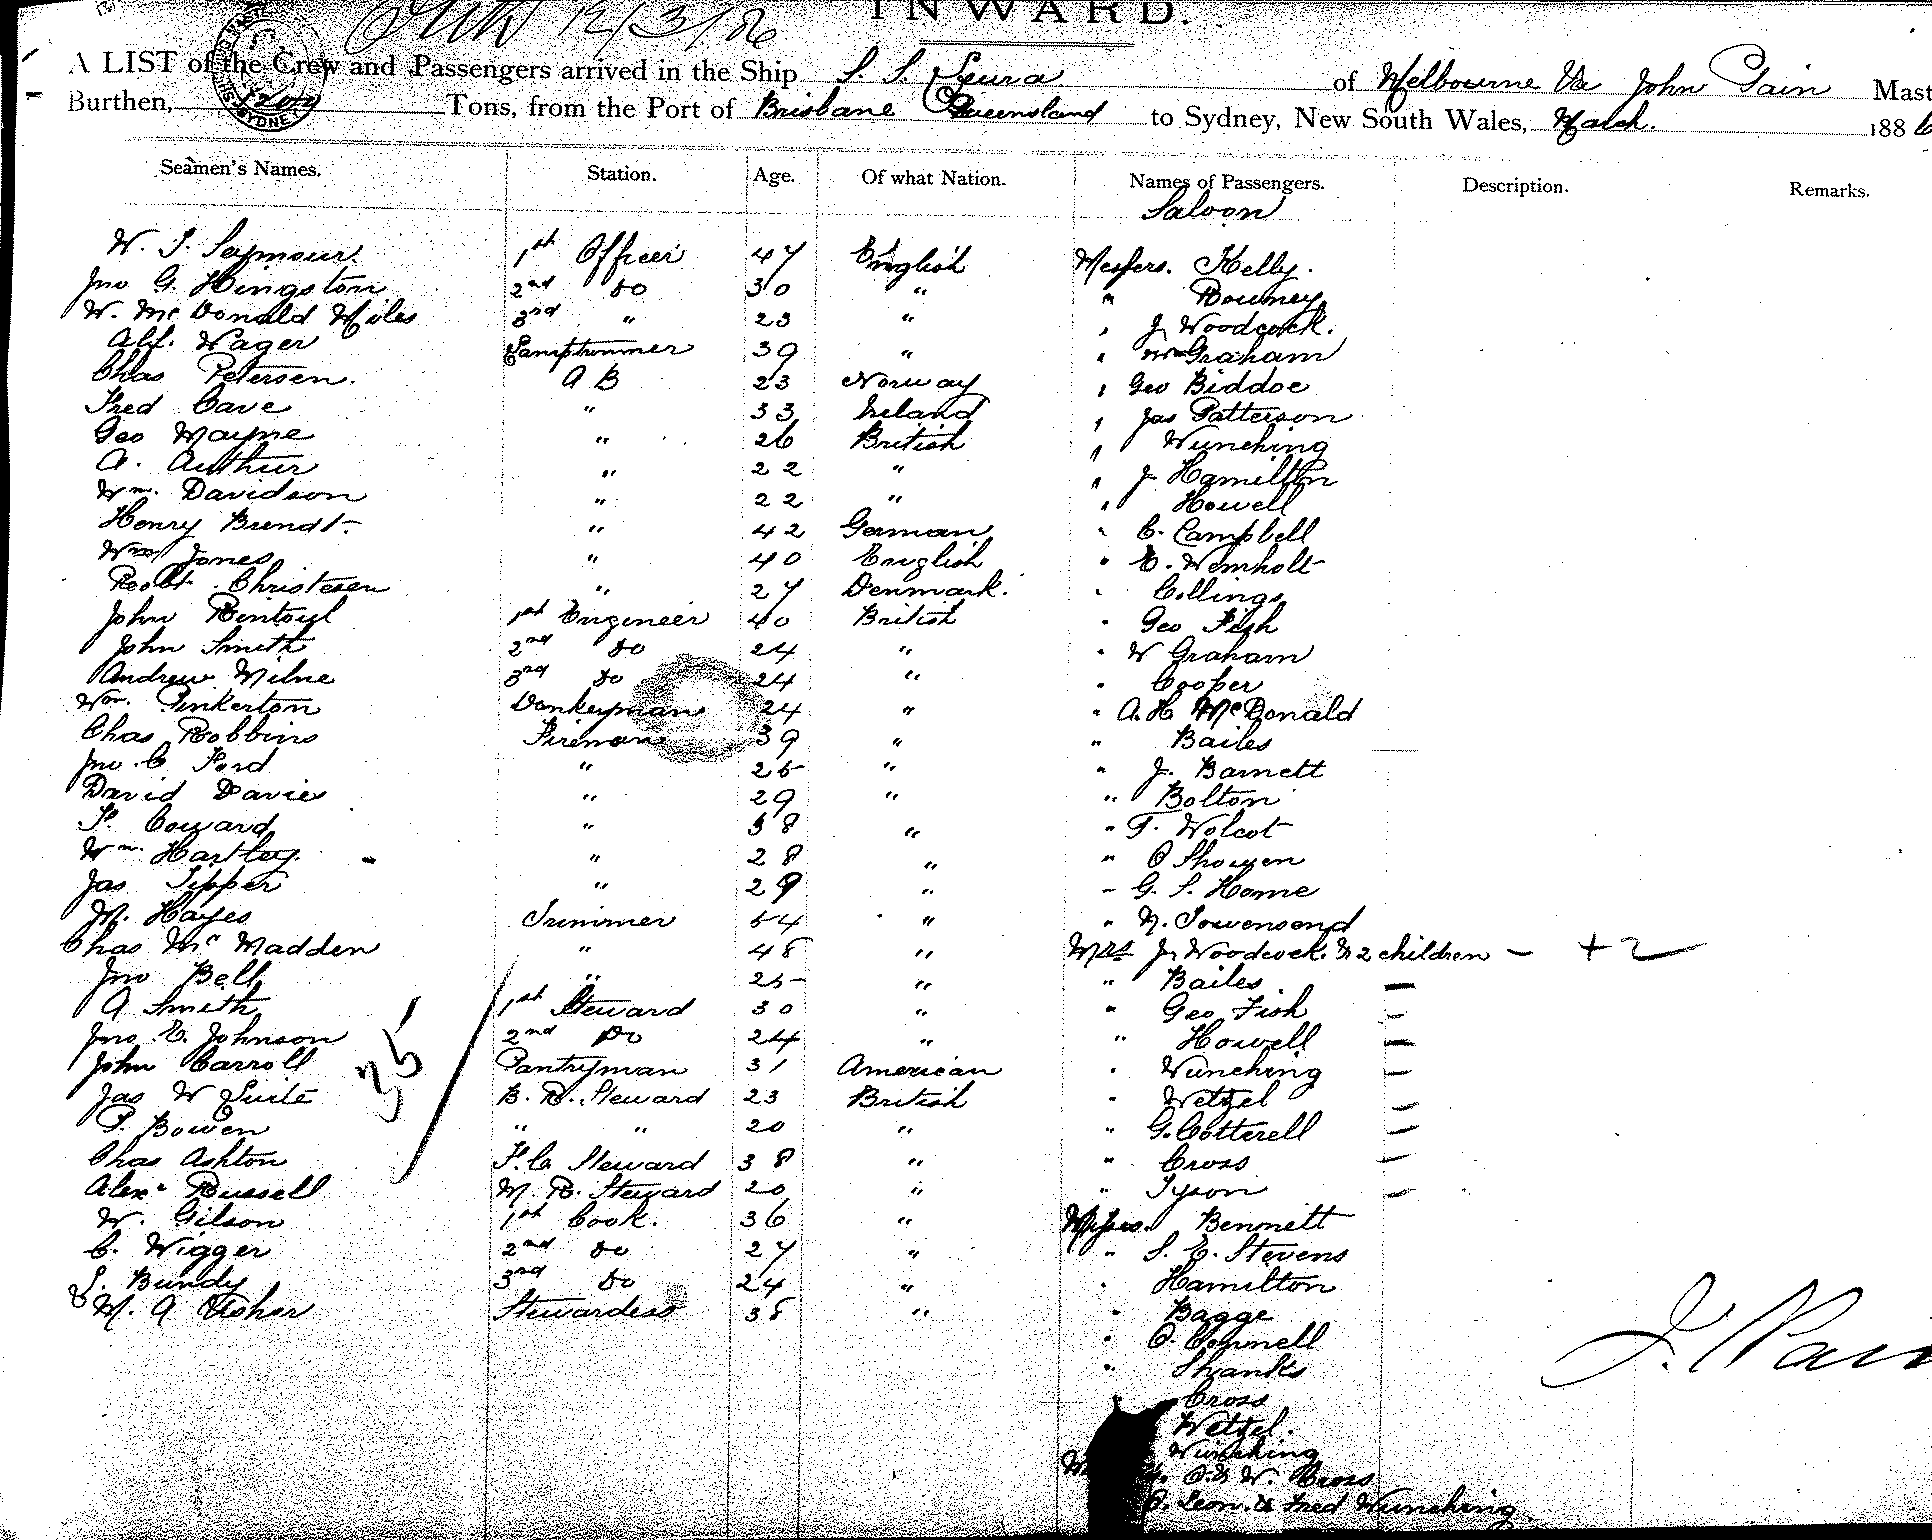 INWARD.
12/3/86
A LIST of the Crew and Passengers arrived in the Ship S. S. Leura of Melbourne Va John Pain Mast
Burthen, Tons, from the Port of Brisbane Queensland to Sydney, New South Wales, March. 1886
Seamen's Names. Station. Age. Of what Nation. Names of Passengers. Description. Remarks.
Saloon
W. J. Seymour 1st Officer 47 English Messers. Kelly.
Jno G. Hingston 2nd Do 30 " " Downey
W. Mc Donald Miles 3rd " 23 " " J Woodcock.
Alf. Wager Lamptrimmer 39 " " Wm Graham
Chas Petersen. A B 23 Norway " Geo Biddoe
Fred Cave " 33 Ireland " Jas Patterson
Geo Mayne " 26 British " Wunching
A. Authur " 22 " " J. Hamilton
Wm. Davidson " 22 " " Howell
Henry Brendt " 42 German " C. Campbell
Wm Jones " 40 English " E. Wemholt
Robt. Christesen " 27 Denmark. " Collings
John Rentoul 1st Engineer 40 British " Geo Fish
John Smith 2nd Do 24 " " W Graham
Andrew Milne 3rd Do 24 " " Cooper
Wm. Pinkerton Donkeyman 24 " " A. H McDonald
Chas Robbins Fireman 39 " " Bailes
Jno. C Ford " 25 " " J. Barnett
David Davies " 29 " " Bolton
F. Coward " 38 " " T. Wolcot
Wm. Hartley. " 28 " "
Jas Tipper " 29 " " G. S. Home
M. Hayes Trimmer 54 " " N. Townsend
Chas Mc Madden " 48 " Mrs J. Woodcock. & 2 children — + 2
Jno Bell " 25 " " Bailes —
A Smith 1st Steward 30 " " Geo Fish —
Jno E. Johnson 2nd Do 24 " " Howell —
John Carroll Pantryman 31 American " Wunching —
Jas W Suite B. R. Steward 23 British " Wetzel —
P. Bowen " " 20 " " G. Cotterell —
Chas Ashton F. C. Steward 38 " " Cross —
Alexr Russell M. R. Steward 20 " " Tyson —
W. Gilson 1st Cook. 36 " Misses. Bennett
C. Wigger 2nd Do 27 " " S. E. Stevens
S. Bundy 3rd Do 24 " " Hamilton
M. A Fisher Stewardess 38 " " Bagge
" O. Connell
" Shanks
Cross
Wetzel.
Wunching
& W. Cross
Leon. & Fred Wunching
36
J. Pain